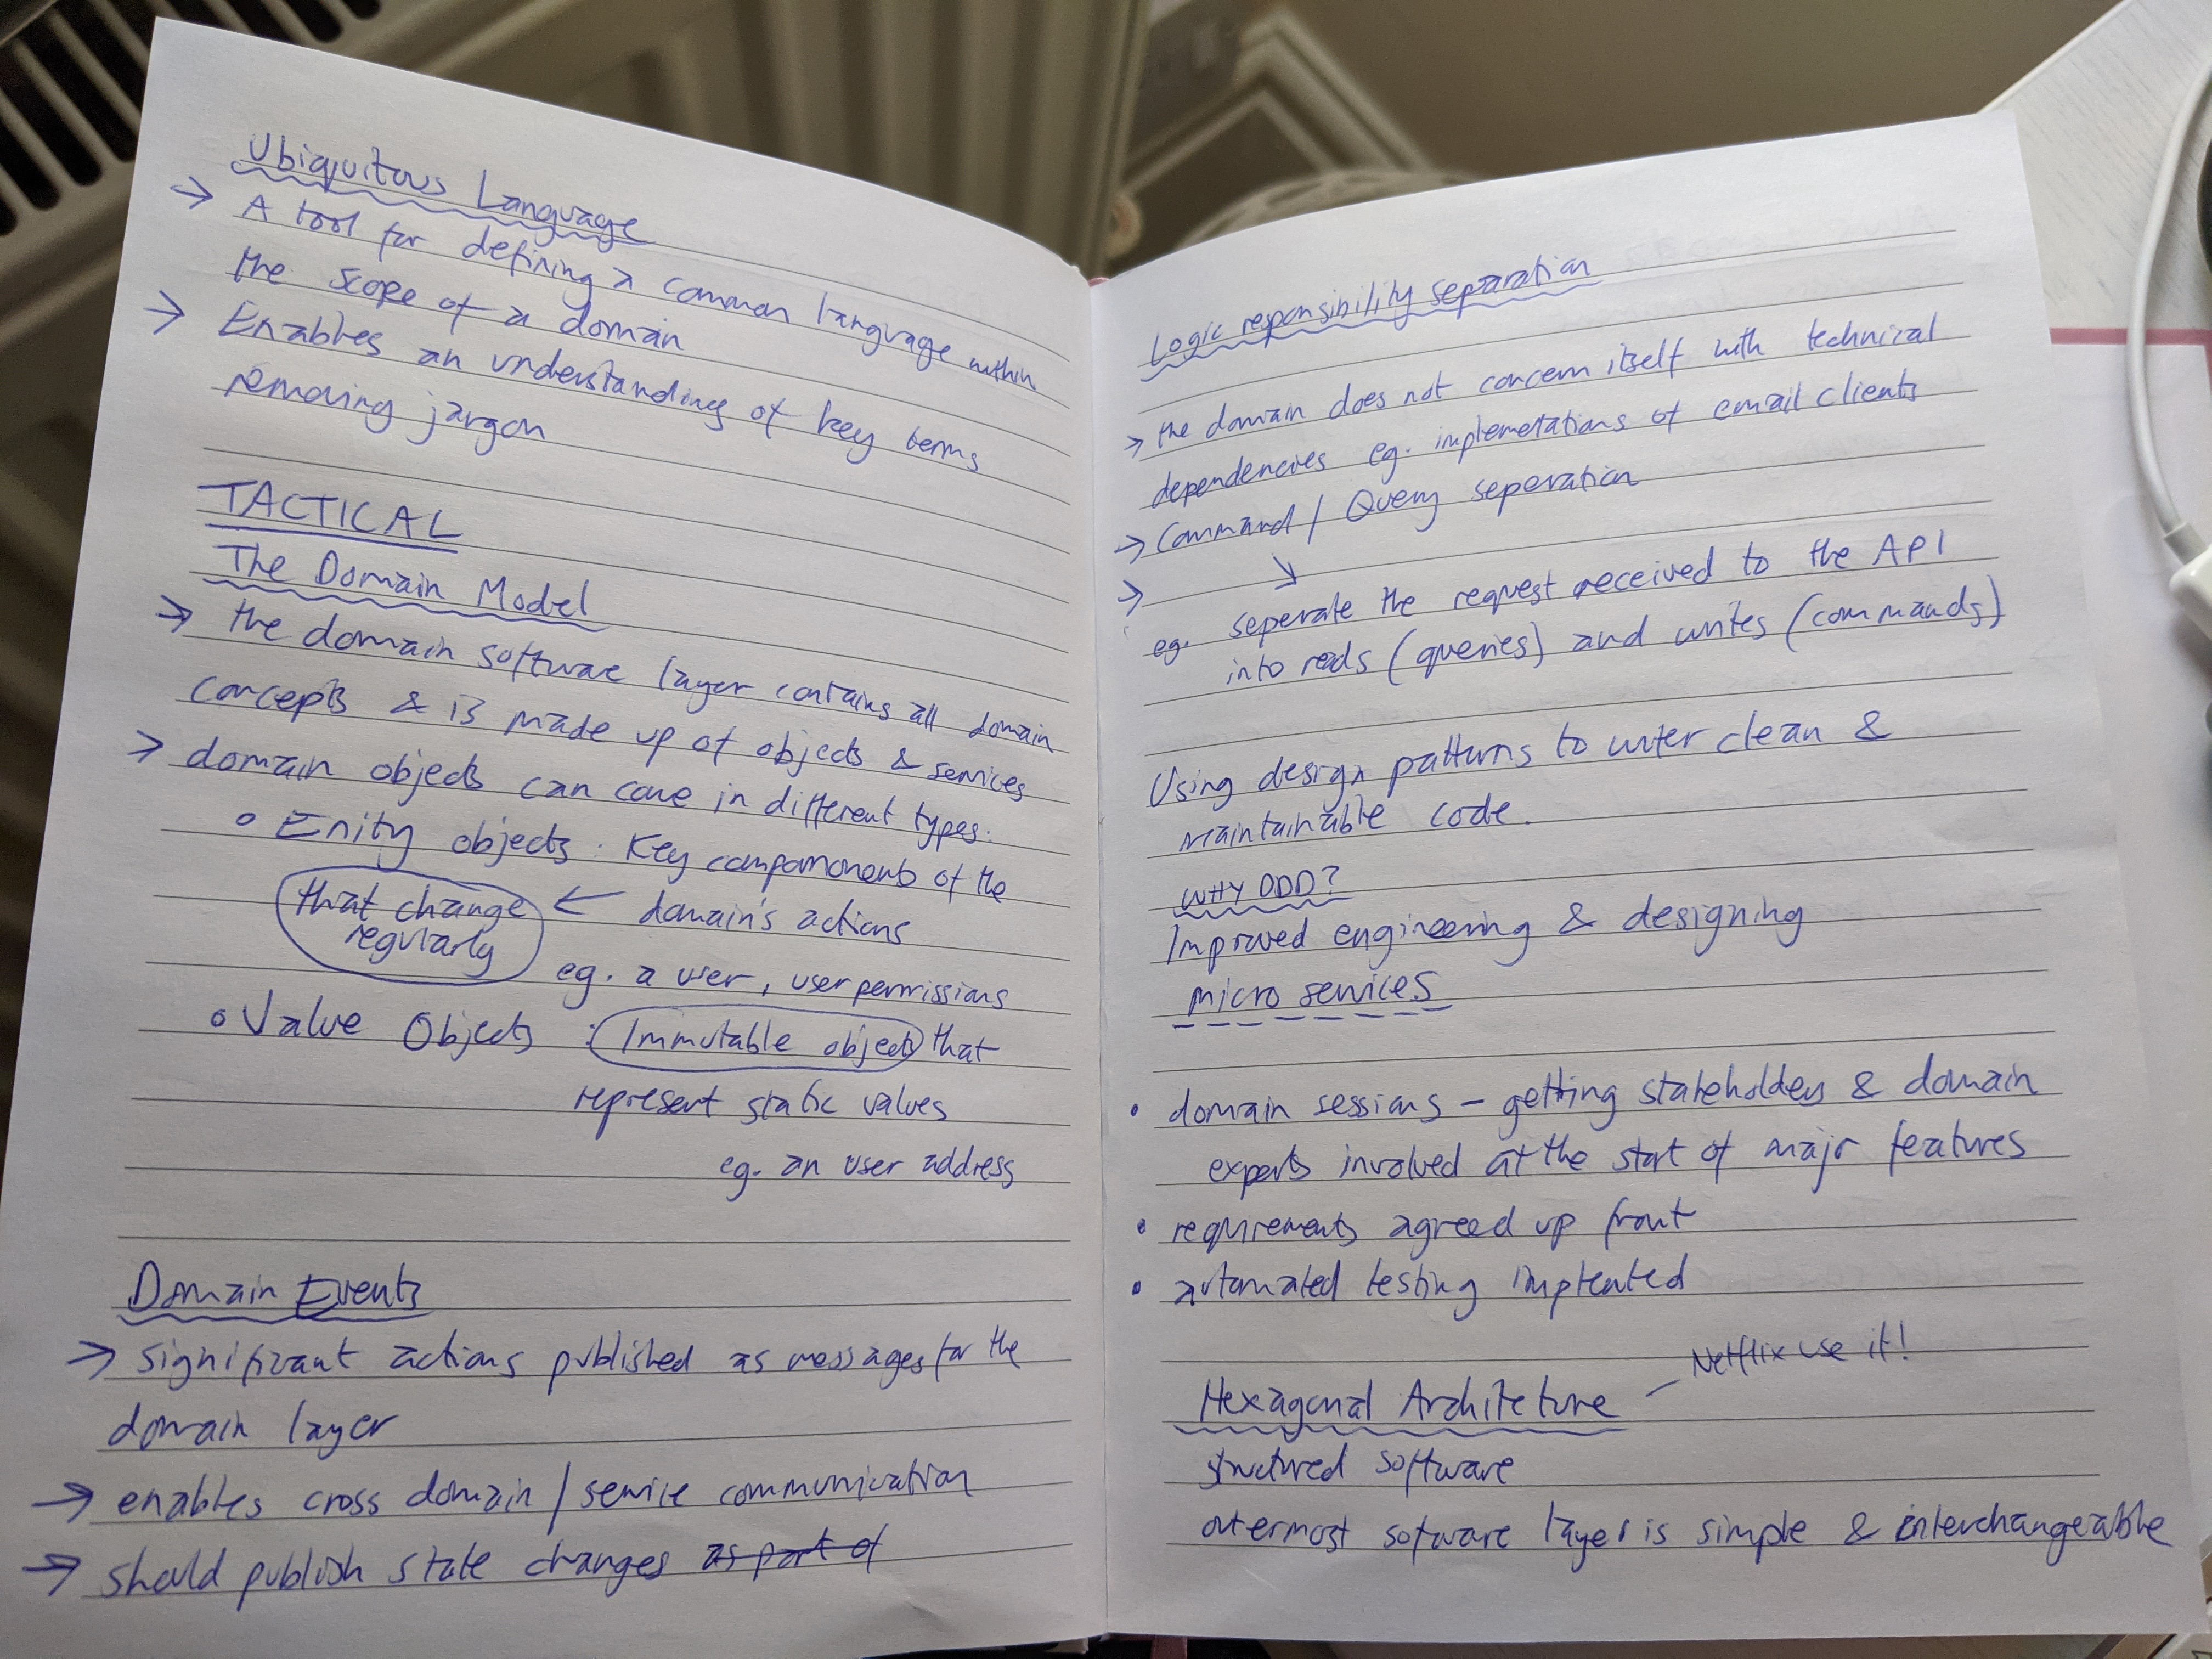 Ubiquitous Language
→ A tool for defining a common language within
the scope of a domain
→ Enables an understanding of key terms
removing jargon
TACTICAL
The Domain Model
→ the domain software layer contains all domain
concepts & is made up of objects & services
→ domain objects can come in different types:
• Enity objects: Key compomonents of the
that change ← domain's actions
regularly
eg. a user, user permissions
• Value Objects : Immutable objects that
represent static values
eg. an user address
Domain Events
→ significant actions published as messages for the
domain layer
→ enables cross domain / service communication
→ should publish state changes as part of
Logic responsibility separation
→ the domain does not concern itself with technical
dependencies eg. implemetations of email clients
→ Command / Query seperation
→ ↘
eg. seperate the request received to the API
into reads (queries) and writes (commands)
Using design patterns to writer clean &
maintainable code.
WHY DDD?
Improved engineering & designing
micro services
• domain sessions - getting stakeholders & domain
experts involved at the start of major features
• requirements agreed up front
• automated testing implented
Hexagonal Architeture - Netflix use it!
structured software
outermost sotware layer is simple & interchangeable